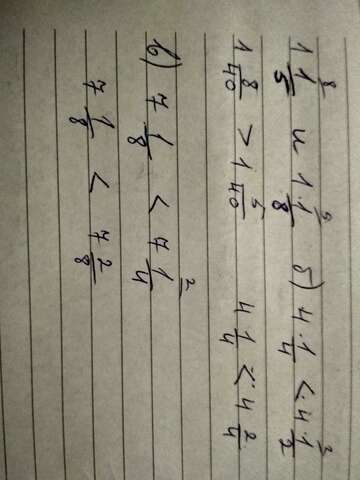 1 1/5 ⁸ и 1 1/8 б) 4 1/4 < 4 1/2 ²
1 8/40 > 1 5/40 4 1/4 < 4 2/4
в) 7 1/8 < 7 1/4 ²
7 1/8 < 7 2/8